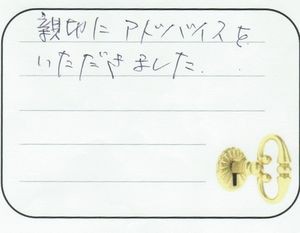 親切にアドバイスを
いただきました..